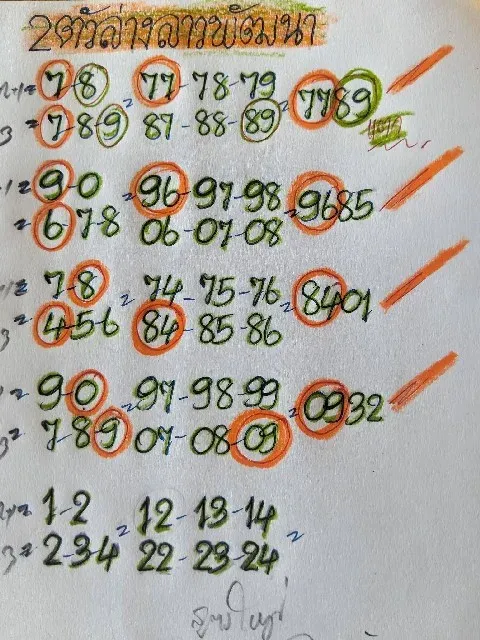 2ตัวล่างลาวพัฒนา
7-8 = 77-78-79 = 7789
3 = 7-8-9 87-88-89
9-0 = 96-97-98 = 9685
= 6-7-8 06-07-08
7-8 = 74-75-76 = 8401
3 = 4-5-6 84-85-86
9-0 = 97-98-99 = 0932
3 = 7-8-9 07-08-09
1-2 = 12-13-14 =
3 = 2-3-4 22-23-24